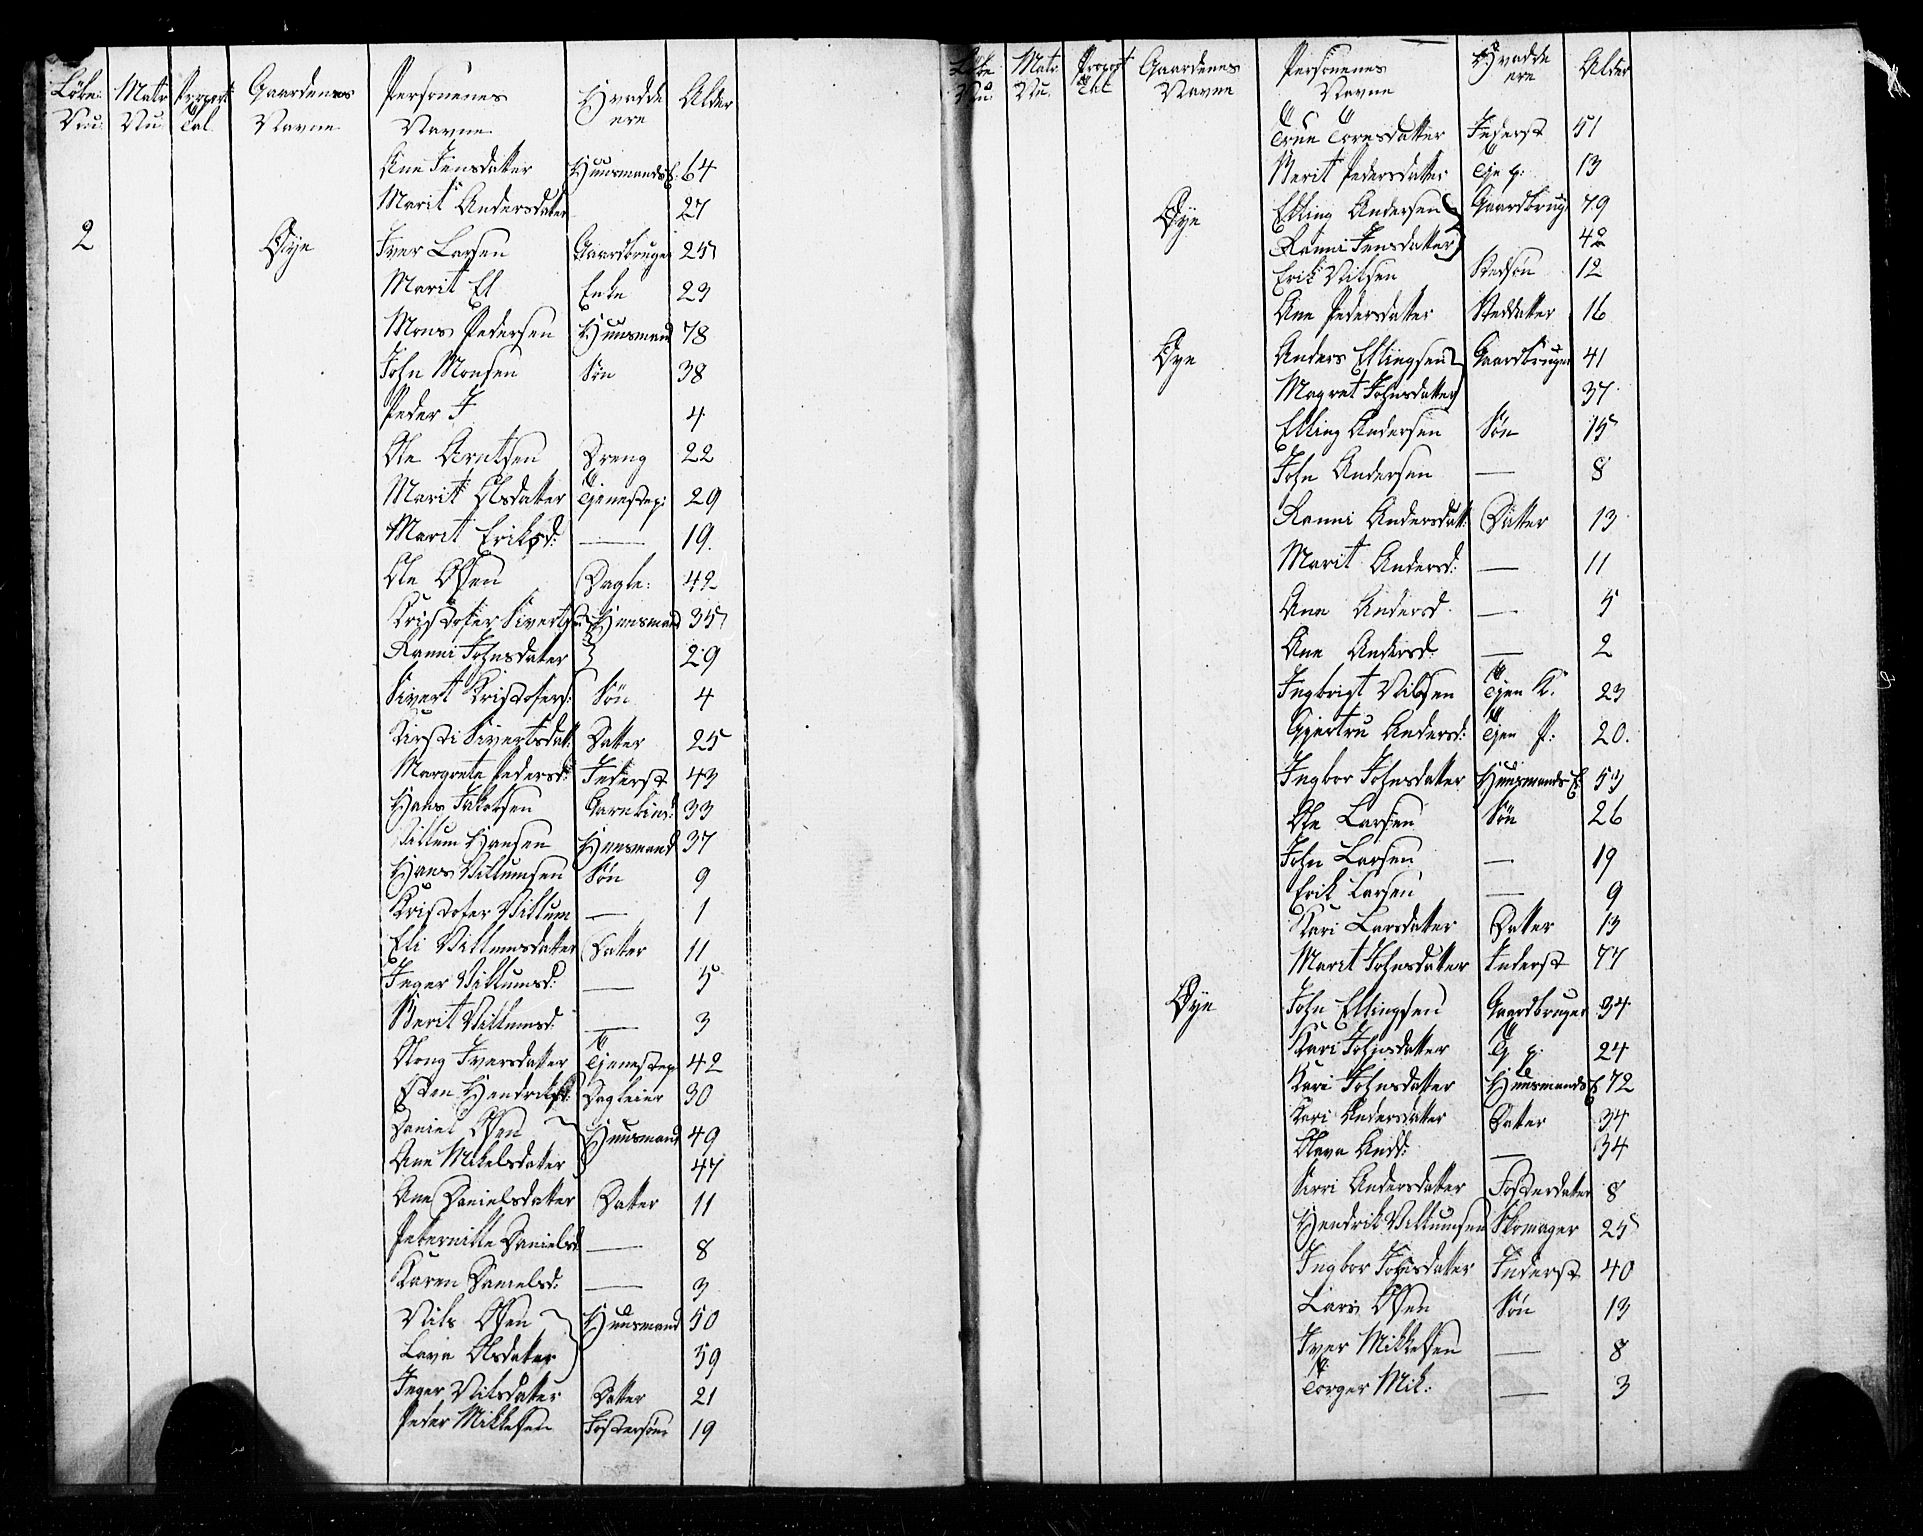 Løbe: Matr Proport Gaardenes Personenes Hvadde Alder
Nu: Nu: Tal Navne Navne ere
Ane Jensdatter Huusmands E: 64
Marit Andersdatter 27
2 Øye Iver Larsen Gaardbruger 25
Marit El Enke 23
Mons Pedersen Huusmand 78
John Monsen Søn 38
Peder J 4
Ole Arntsen Dreng 22
Marit Olsdatter Tjenestep: 29
Marit Eriksd: — 19.
Ole Olsen Dagle: 42
Kristofer Siverts Huusmand 35
Ranni Johnsdater 29
Sivert Kristofers: Søn 4
Kirsti Sivertsdatt: Datter 25
Margrete Pedersd: Inderst 43
Hans Jakobsen Garnbind: 33
Villum Hansen Huusmand 37
Hans Villumsen Søn 9
Kristofer Villum — 1
Eli Villumsdatter Datter 11
Inger Villumsd: — 5
Berit Villumsd: — 3
Olong Iversdatter Tjenestep 42
Esten Hendriks: Dagleier 30
Daniel Olsen Huusmand 49
Ane Mikelsdatter 47
Ane Danielsdatter Datter 11
Pebernille Danielsd — 8
Karen Danielsd: — 3
Nils Olsen Huusmand 50
Lava Olsdater 59
Inger Nilsdatter Datter 21
Peder Mikkelsen Fostersøn 19
Løbe Matr Proport Gaardenes Personenes Hvadde Alder
Nu: Nu. Tal Navne Navne ere
Trne Toresdatter Inderst 51
Berit Pedersdatter Tje p: 13
Øye Elling Andersen Gaardbrug 79
Ranni Jensdatter 42
Erik Nilsen Stedsøn 12
Ane Pedersdatter Steddatter 16
Øye Anders Ellingsen Gaardbruger 41
Magret Johnsdatter 37
Elling Andersen Søn 15
John Andersen — 8
Ranni Andersdatt: Datter 13
Marit Andersd: — 11
Ane Andersd — 5
Ane Andersd: — 2
Ingbrigt Nilsen Tjen K. 23
Gjertru Andersd: Tjen P: 20.
Ingbor Johnsdatter Huusmands E 53
Ole Larsen Søn 26
John Larsen — 19
Erik Larsen — 9
Kari Larsdatter Datter 13
Marit Johnsdatter Inderst 77
Øye John Ellingsen Gaardbruger 34
Kari Johnsdatter Tj p: 24
Kari Johnsdatter Huusmands E 72
Kari Andersdatter Datter 34
Olava Andd: — 34
Sirri Andersdatter Fosterdater 8
Hendrik Villumsen Skomager 25
Ingbor Johnsdatter Inderst 40
Lars Olsen Søn 13
Iver Mikkelsen — 8
Torger Mik: — 3